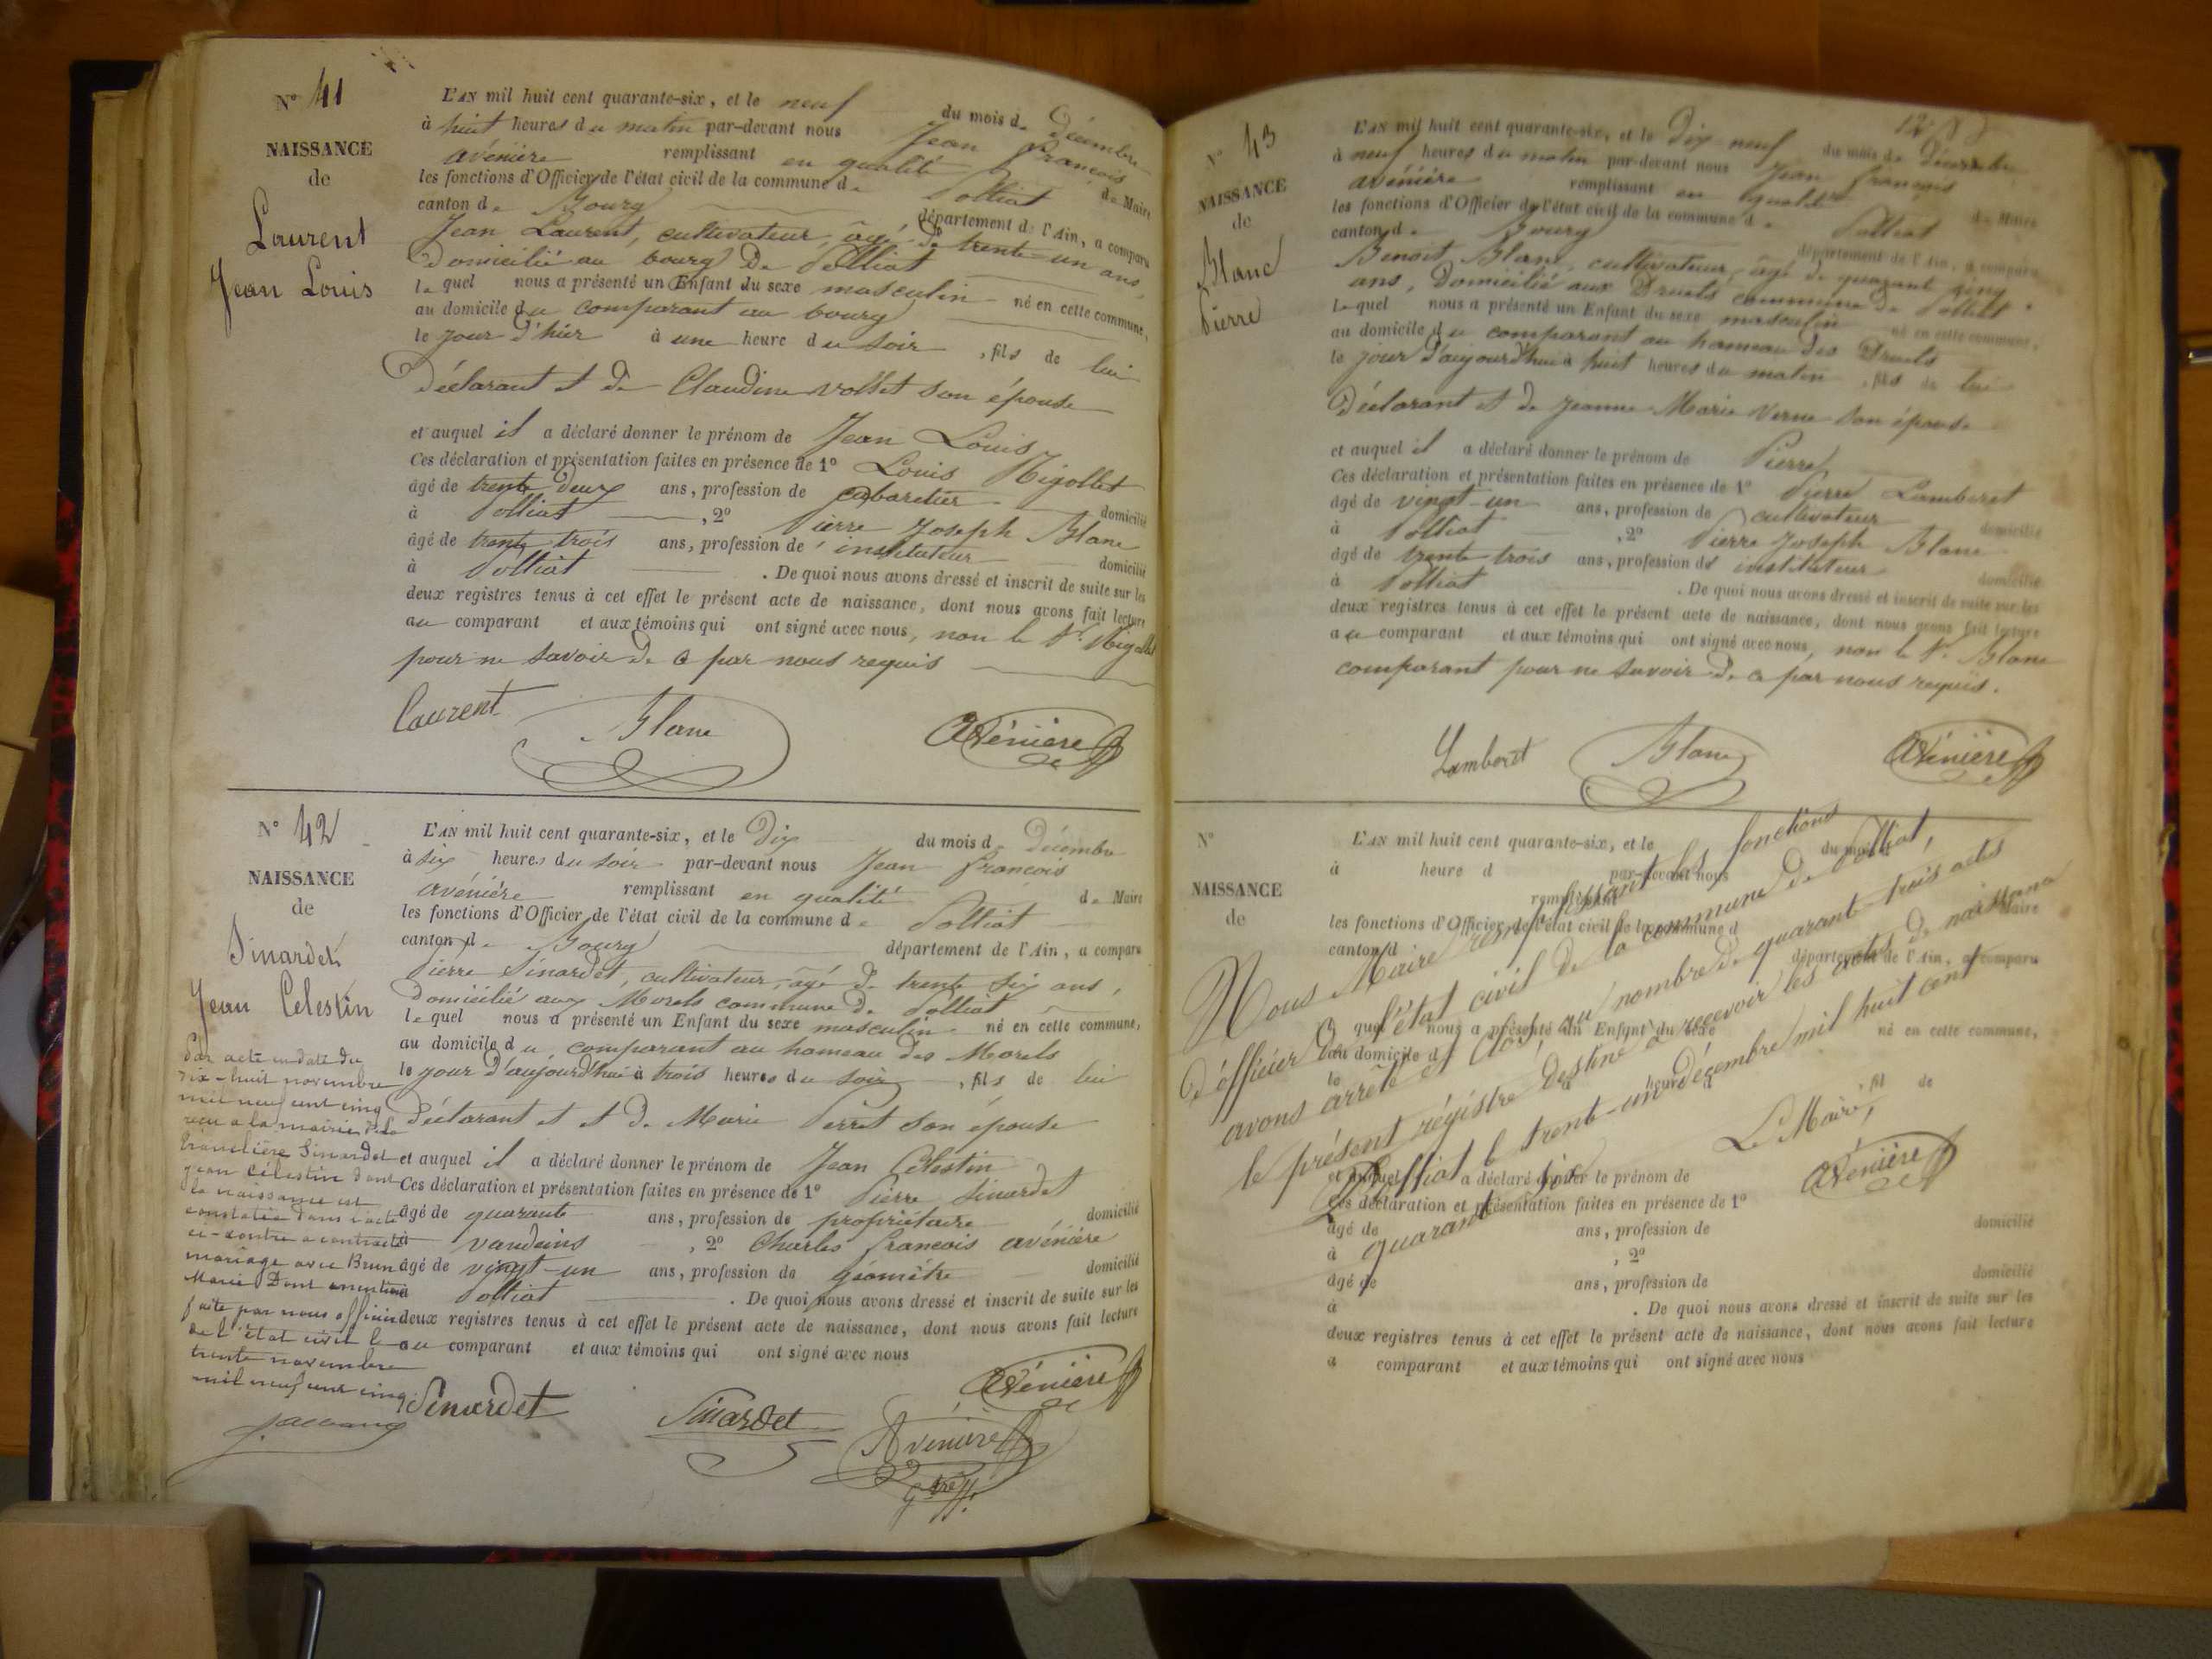 N° 41
NAISSANCE
de
Laurent
Jean Louis
L'AN mil huit cent quarante-six, et le neuf du mois de Décembre
à huit heures du matin par-devant nous Jean François
avénière remplissant en qualité de Maire
les fonctions d'Officier de l'état civil de la commune de Polliat
canton de Bourg département de l'Ain, a comparu
Jean Laurent, cultivateur, âgé de trente-un ans,
Domicilié au bourg de Polliat
lequel nous a présenté un Enfant du sexe masculin né en cette commune,
au domicile du comparant au bourg
le jour d'hier à une heure du soir, fils de lui
Déclarant et de Claudine vollet son épouse
et auquel il a déclaré donner le prénom de Jean Louis
Ces déclaration et présentation faites en présence de 1° Louis Rigollet
âgé de trente deux ans, profession de cabaretier domicilié
à Polliat, 2° Pierre Joseph Blanc
âgé de trente trois ans, profession de instituteur domicilié
à Polliat. De quoi nous avons dressé et inscrit de suite sur les
deux registres tenus à cet effet le présent acte de naissance, dont nous avons fait lecture
au comparant et aux témoins qui ont signé avec nous, non le Sr. Rigollet
pour ne savoir de ce par nous requis
Laurent Blanc Avénière
N° 42
NAISSANCE
de
Sinardet
Jean Célestin
Par acte en date du
dix-huit novembre
mil neuf cent cinq
reçu à la mairie de la
Tranclière Sinardet
Jean Célestin dont
la naissance est
constatée dans l'acte
ci-contre a contracté
mariage avec Brun
Marie Dont mention
faite par nous officier
de l'état civil le
trente novembre
mil neuf cent cinq
L'AN mil huit cent quarante-six, et le Dix du mois de Décembre
à six heures du soir par-devant nous Jean François
avénière remplissant en qualité de Maire
les fonctions d'Officier de l'état civil de la commune de Polliat
canton de Bourg département de l'Ain, a comparu
Pierre Sinardet, cultivateur, âgé de trente six ans,
Domicilié aux Morels commune de Polliat
lequel nous a présenté un Enfant du sexe masculin né en cette commune,
au domicile du comparant au hameau des Morels
le jour d'aujourd'hui à trois heures du soir, fils de lui
Déclarant et et de Marie Perret son épouse
et auquel il a déclaré donner le prénom de Jean Célestin
Ces déclaration et présentation faites en présence de 1° Pierre Sinardet
âgé de quarante ans, profession de propriétaire domicilié
à vandeins, 2° Charles François avénière
âgé de vingt-un ans, profession de géomètre domicilié
à Polliat. De quoi nous avons dressé et inscrit de suite sur les
deux registres tenus à cet effet le présent acte de naissance, dont nous avons fait lecture
au comparant et aux témoins qui ont signé avec nous
Avénière
Sinardet Sinardet Avénière
N° 43
NAISSANCE
de
Blanc
Pierre
L'AN mil huit cent quarante-six, et le Dix neuf du mois de Décembre
à neuf heures du matin par-devant nous Jean François
avénière remplissant en qualité de Maire
les fonctions d'Officier de l'état civil de la commune de Polliat
canton de Bourg département de l'Ain, a comparu
Benoit Blanc, cultivateur, âgé de quarant cinq
ans, Domicilié aux Druels commune de Polliat
Lequel nous a présenté un Enfant du sexe masculin né en cette commune,
au domicile du comparant au hameau des Druels
le jour d'aujourd'hui à huit heures du matin, fils de lui
Déclarant et de Jeanne Marie Verne son épouse
et auquel il a déclaré donner le prénom de Pierre
Ces déclaration et présentation faites en présence de 1° Pierre Lamberet
âgé de vingt-un ans, profession de cultivateur domicilié
à Polliat, 2° Pierre Joseph Blanc
âgé de trente-trois ans, profession de instituteur domicilié
à Polliat. De quoi nous avons dressé et inscrit de suite sur les
deux registres tenus à cet effet le présent acte de naissance, dont nous avons fait lecture
au comparant et aux témoins qui ont signé avec nous, non le Sr. Blanc
comparant pour ne savoir de ce par nous requis.
Lamberet Blanc Avénière
N°
NAISSANCE
de
L'AN mil huit cent quarante-six, et le du mois d
à heure d par-devant nous
remplissant
Maire
les fonctions d'Officier de l'état civil de la commune d
canton d département de l'Ain, a comparu
quel nous a présenté un Enfant du sexe né en cette commune,
au domicile d
le à heure d, fil de
et auquel a déclaré donner le prénom de
Ces déclaration et présentation faites en présence de 1°
âgé de ans, profession de domicilié
à, 2°
âgé de ans, profession de domicilié
à. De quoi nous avons dressé et inscrit de suite sur les
deux registres tenus à cet effet le présent acte de naissance, dont nous avons fait lecture
a comparant et aux témoins qui ont signé avec nous
Nous Maire remplissant les fonctions
d'officier de l'état civil de la commune de Polliat,
avons arrêté et clos, au nombre de quarant-trois actes
le présent régistre destiné à recevoir les actes de naissance
à Polliat le trente-un décembre mil huit cent
quarant six
Le Maire,
Avénière